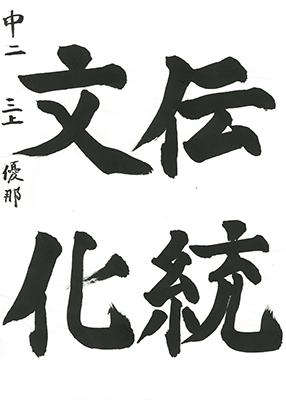 伝統
文化
中二 三上 優那